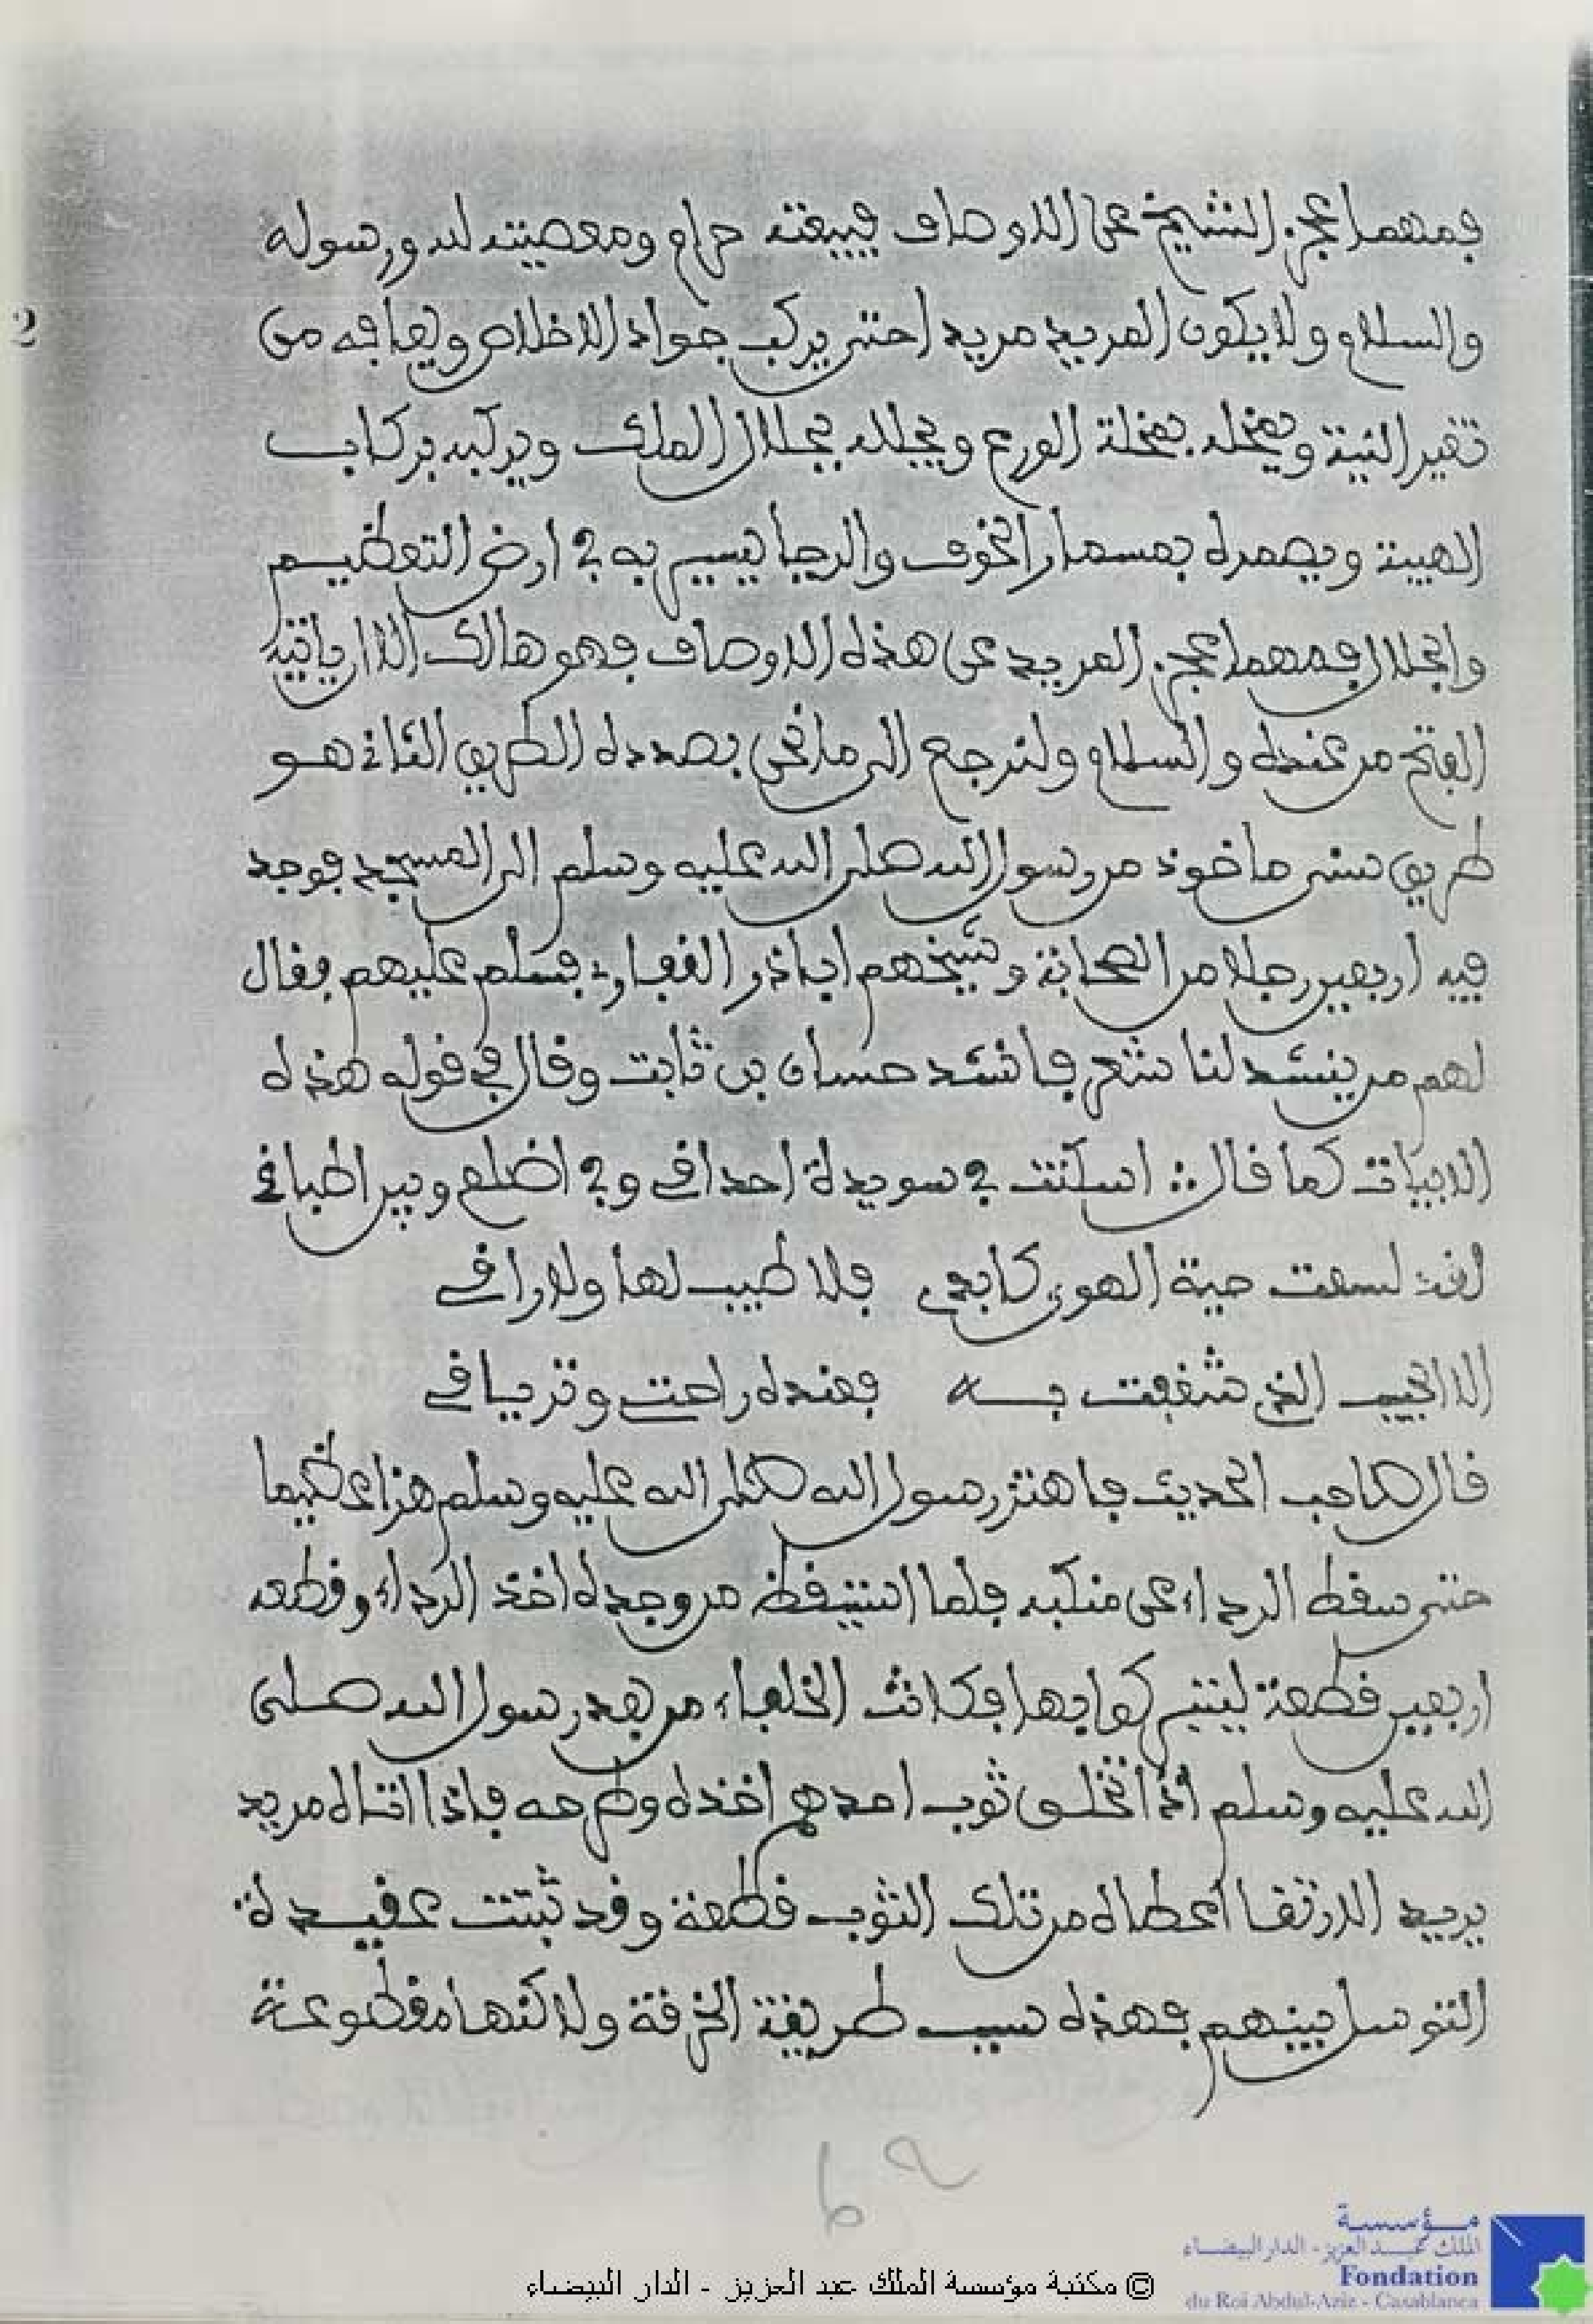 فمهما عجز الشيخ على الاوصاف فبيعته حرام ومعصيته لله ورسوله
والسلام ولا يكون المريد مريدا حتى يركب جواد الاخلاص ويعافه من
2
تغير النية ويخله بخلة الورع ويجلله بجلال الملك ويركبه بركاب
الهيبة ويصمره بمسمار الخوف والرجا يسير به في ارض التعظيم
والجلال فمهما عجز المريد عن هذه الاوصاف فهو هالك الا ان ياتيه
الفتح من عنده والسلام ولنرجع الى ما نحن بصدده الطريق الثاني هو
طريق ماخوذ من رسول الله صلى الله عليه وسلم الى المسجد فوجد
فيه اربعين رجلا من الصحابة وشيخهم اباذر الغفاري فسلم عليهم وقال
لهم من ينشد لنا شعر فانشد حسان بن ثابت وقال في قوله هذه
الابيات كما قال اسكنت في سويدة احداقي وفي اضلع وبين اطباقي
لقد لسعت حية الهوى كابدي فلا طبيب لها ولا راقي
الا الحبيب الذي شغفت به فعنده راحتي وترياقي
قال صاحب الحديث فاهتز رسول الله صلى الله عليه وسلم هزا عظيما
حتى سقط الرداء عن منكبه فلما استيقظ من وجده اخذ الرداء وقطعه
اربعين قطعة فكانت الخلفاء من بعد رسول الله صلى
الله عليه وسلم اذا انخلق ثوب احدهم اخذه وطرحه فاذا اتاه مريد
يريد الارتقا اعطاه من تلك الثوب قطعة وقد ثبتت عقيدة
التوسل بينهم فهذه سبب طريقة الخرقة ولاكنها مقطوعة
مؤسسة
الملك عبد العزيز - الدار البيضاء
Fondation
du Roi Abdul-Aziz - Casablanca
© مكتبة مؤسسة الملك عبد العزيز - الدار البيضاء